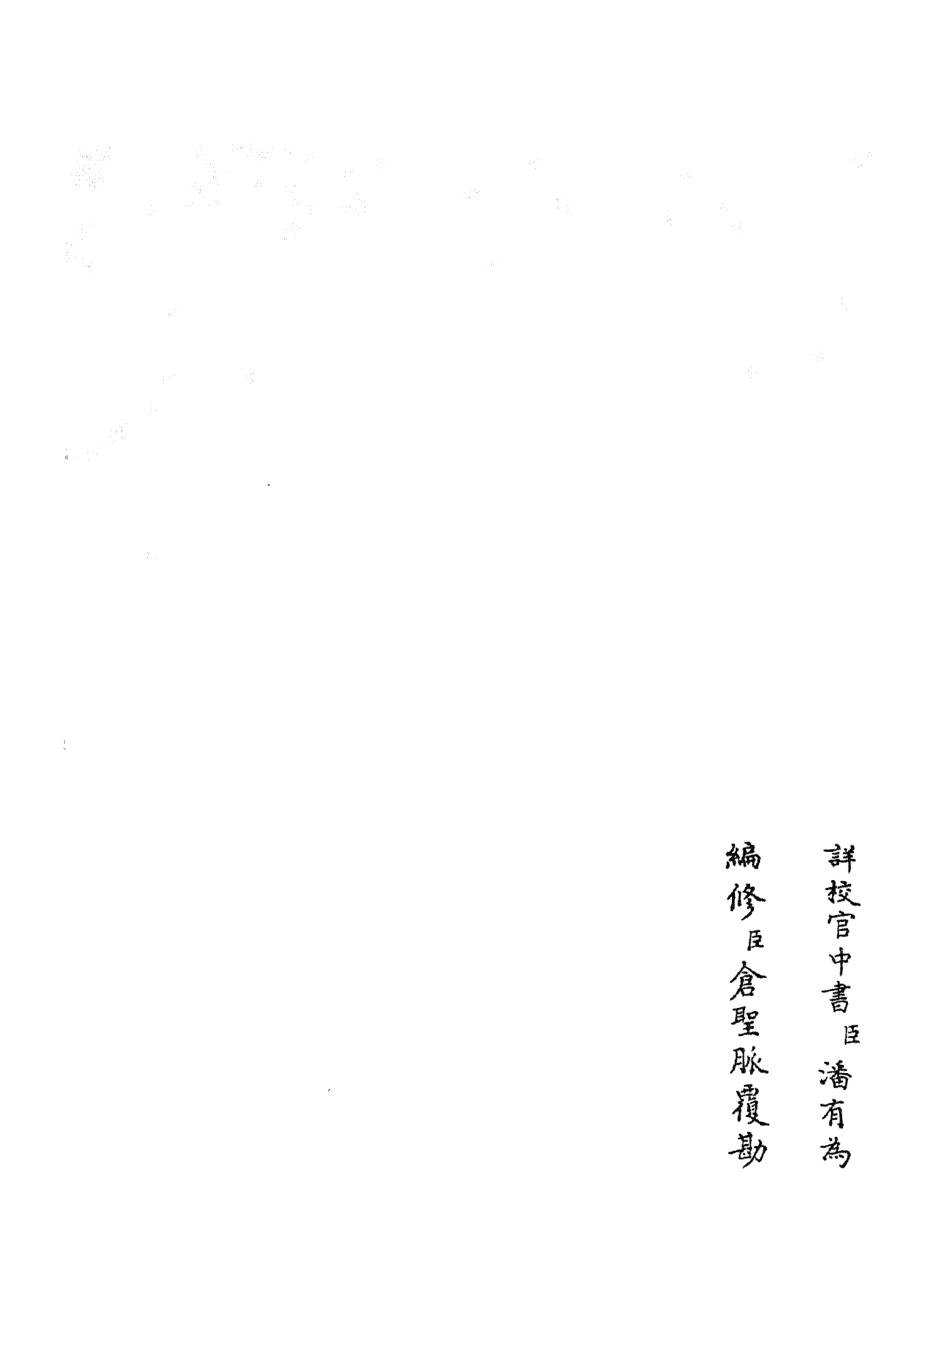 詳校官中書臣潘有為
編修臣倉聖脈覆勘